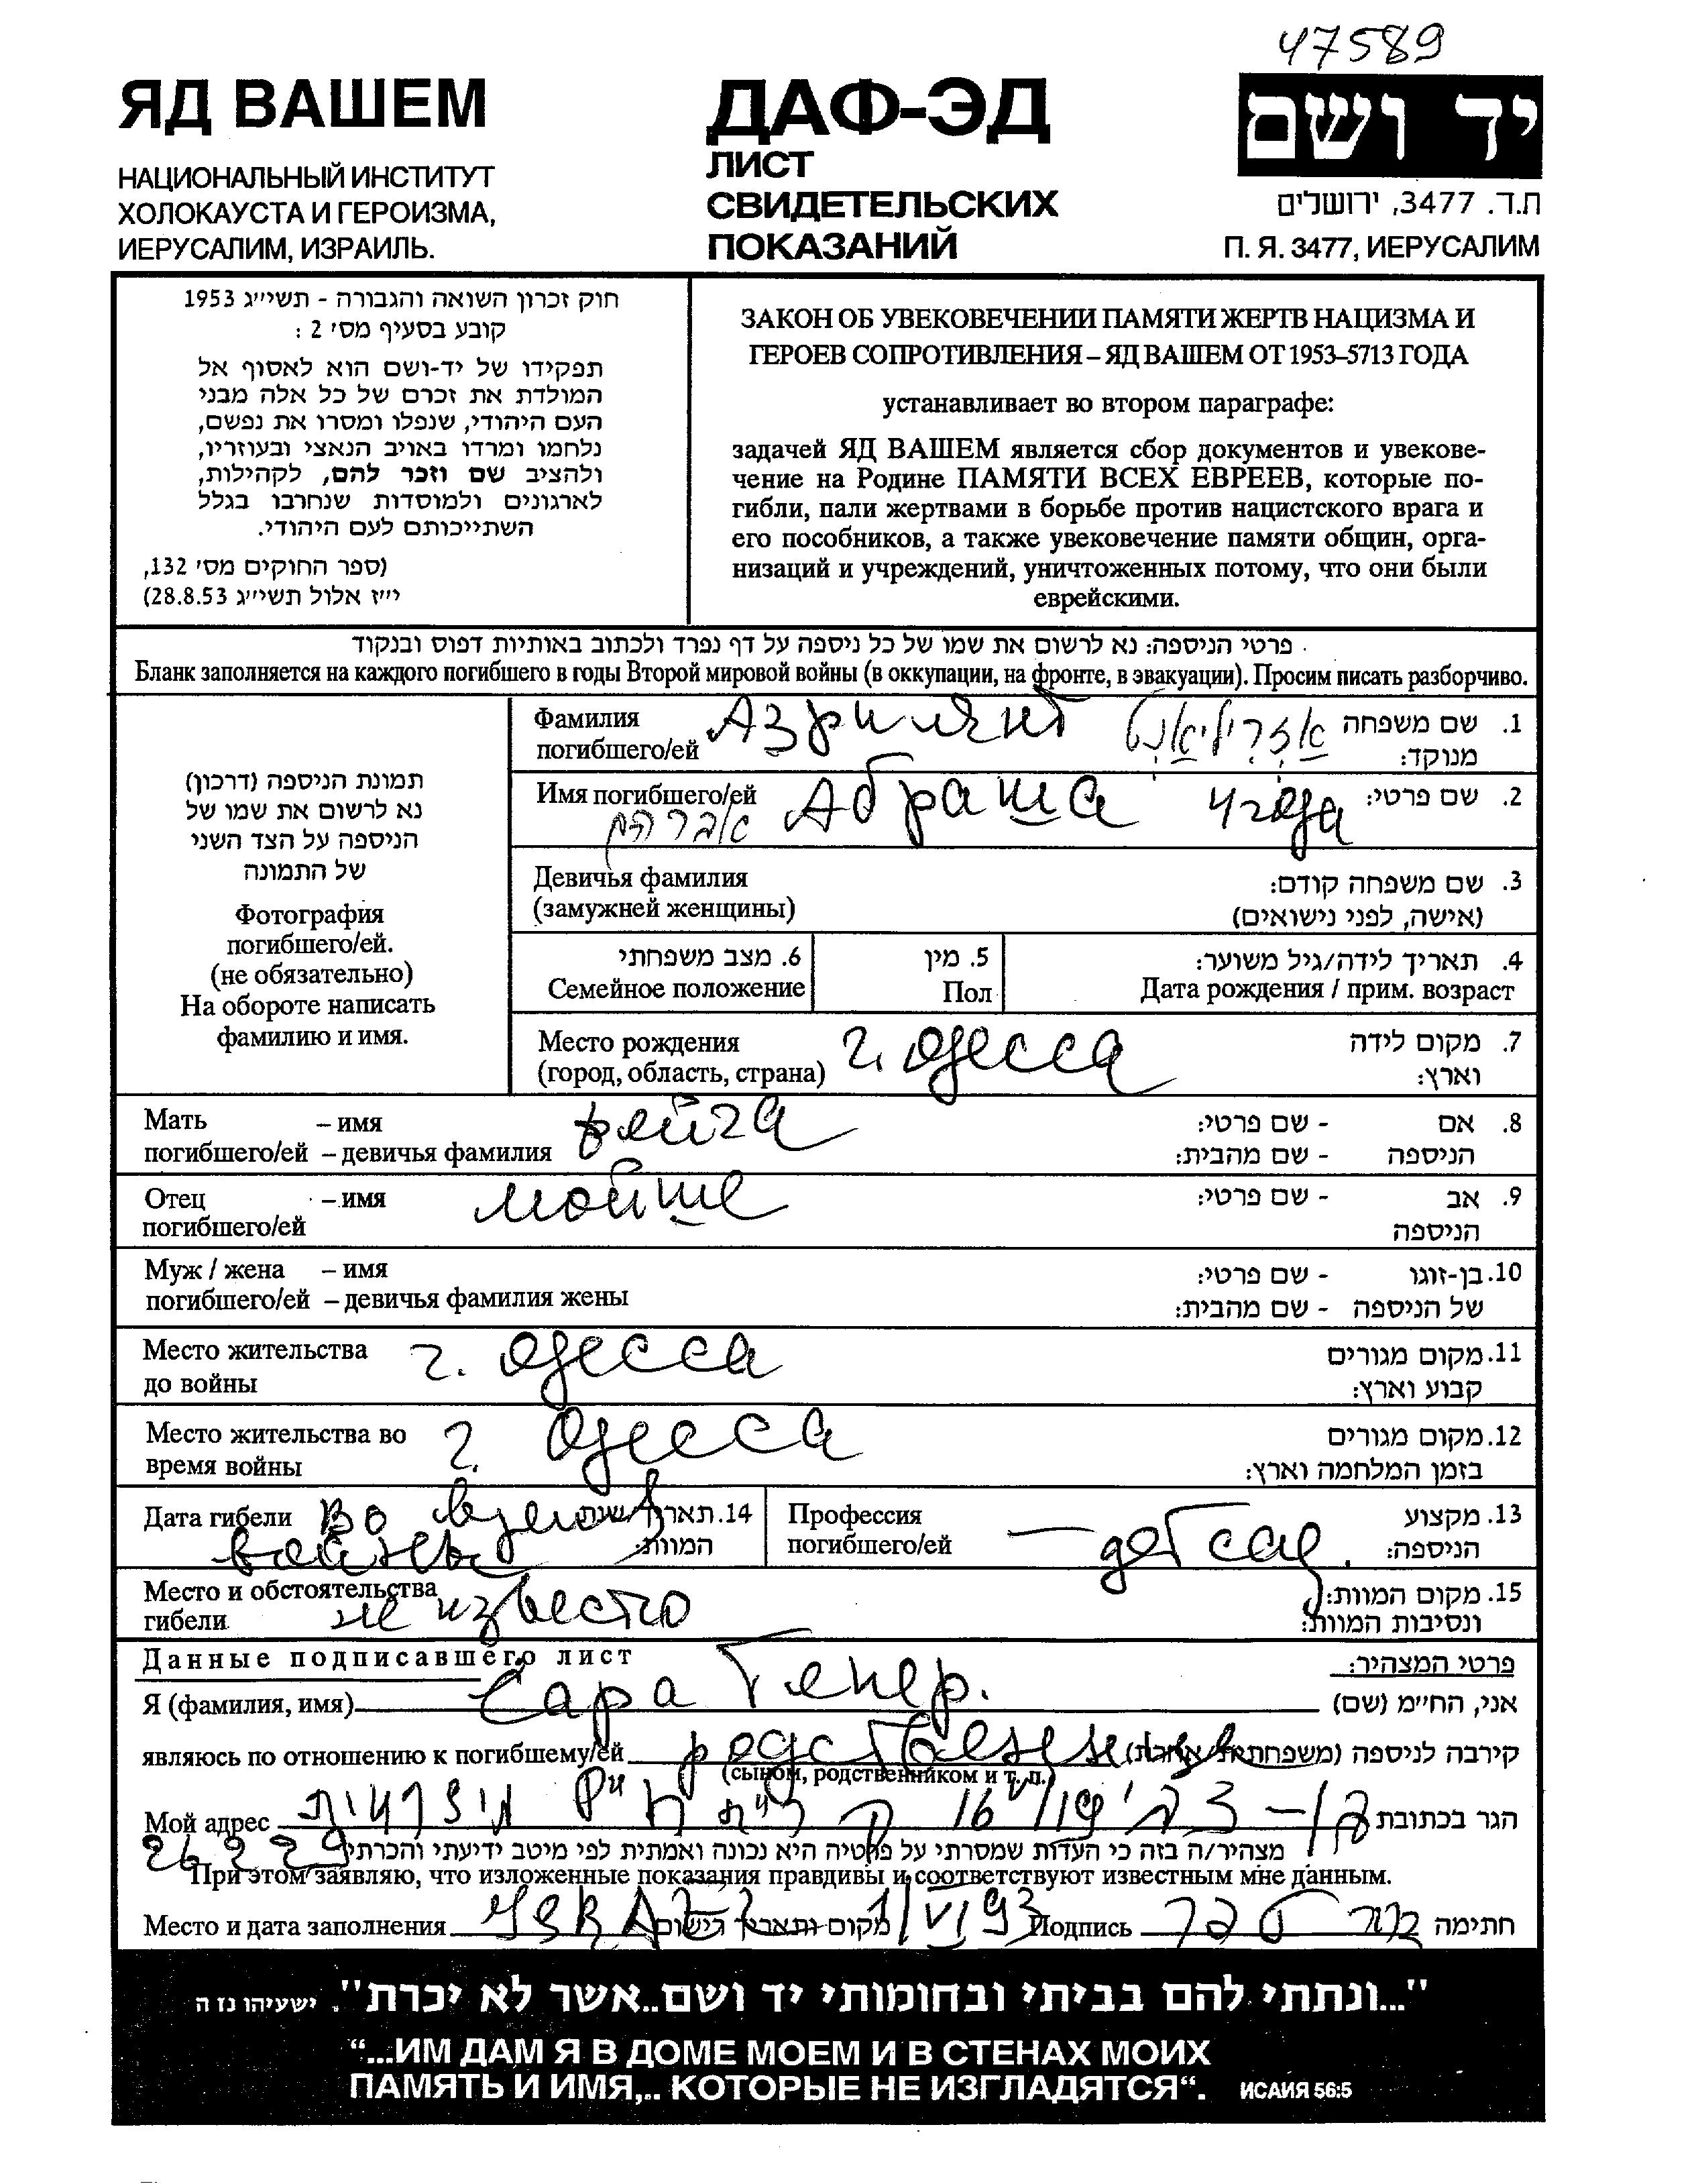 47589
ЯД ВАШЕМ
НАЦИОНАЛЬНЫЙ ИНСТИТУТ
ХОЛОКАУСТА И ГЕРОИЗМА,
ИЕРУСАЛИМ, ИЗРАИЛЬ.
ДАФ-ЭД
ЛИСТ
СВИДЕТЕЛЬСКИХ
ПОКАЗАНИЙ
יד ושם
ת.ד. 3477, ירושלים
П. Я. 3477, ИЕРУСАЛИМ
חוק זכרון השואה והגבורה - תשי״ג 1953
קובע בסעיף מס׳ 2 :
תפקידו של יד-ושם הוא לאסוף אל
המולדת את זכרם של כל אלה מבני
העם היהודי, שנפלו ומסרו את נפשם,
נלחמו ומרדו באויב הנאצי ובעוזריו,
ולהציב שם וזכר להם, לקהילות,
לארגונים ולמוסדות שנחרבו בגלל
השתייכותם לעם היהודי.
(ספר החוקים מס׳ 132,
י״ז אלול תשי״ג 28.8.53)
ЗАКОН ОБ УВЕКОВЕЧЕНИИ ПАМЯТИ ЖЕРТВ НАЦИЗМА И
ГЕРОЕВ СОПРОТИВЛЕНИЯ – ЯД ВАШЕМ ОТ 1953–5713 ГОДА
устанавливает во втором параграфе:
задачей ЯД ВАШЕМ является сбор документов и увекове-
чение на Родине ПАМЯТИ ВСЕХ ЕВРЕЕВ, которые по-
гибли, пали жертвами в борьбе против нацистского врага и
его пособников, а также увековечение памяти общин, орга-
низаций и учреждений, уничтоженных потому, что они были
еврейскими.
פרטי הניספה: נא לרשום את שמו של כל ניספה על דף נפרד ולכתוב באותיות דפוס ובנקוד
Бланк заполняется на каждого погибшего в годы Второй мировой войны (в оккупации, на фронте, в эвакуации). Просим писать разборчиво.
תמונת הניספה (דרכון)
נא לרשום את שמו של
הניספה על הצד השני
של התמונה
Фотография
погибшего/ей.
(не обязательно)
На обороте написать
фамилию и имя.
Фамилия Азрилянт אזריליאנט 1. שם משפחה
погибшего/ей מנוקד:
Имя погибшего/ей Абраша 4 года 2. שם פרטי:
אברהם
Девичья фамилия 3. שם משפחה קודם:
(замужней женщины) (אישה, לפני נישואים)
6. מצב משפחתי 5. מין 4. תאריך לידה/גיל משוער:
Семейное положение Пол Дата рождения / прим. возраст
Место рождения г. Одесса 7. מקום לידה
(город, область, страна) וארץ:
Мать – имя Бейла 8. אם - שם פרטי:
погибшего/ей – девичья фамилия הניספה - שם מהבית:
Отец – имя Мойше 9. אב - שם פרטי:
погибшего/ей הניספה
Муж / жена – имя 10. בן-זוגו - שם פרטי:
погибшего/ей – девичья фамилия жены של הניספה - שם מהבית:
Место жительства г. Одесса 11. מקום מגורים
до войны קבוע וארץ:
Место жительства во г. Одесса 12. מקום מגורים
время войны בזמן המלחמה וארץ:
Дата гибели Во время 14. תאריך/שנת
войны המוות:
Профессия — детсад. 13. מקצוע
погибшего/ей הניספה:
Место и обстоятельства 15. מקום המוות:
гибели не известно ונסיבות המוות:
Данные подписавшего лист פרטי המצהיר:
Я (фамилия, имя) Сара Текер. אני, הח״מ (שם)
являюсь по отношению к погибшему/ей קירבה לניספה (משפחתית/אחרת)
(сыном, родственником и т. п.)
Мой адрес 16 קרית הגר בכתובת
26229 מצהיר/ה בזה כי העדות שמסרתי על פרטיה היא נכונה ואמתית לפי מיטב ידיעתי והכרתי.
При этом заявляю, что изложенные показания правдивы и соответствуют известным мне данным.
Место и дата заполнения מקום ותאריך הרישום 1/VI 93 Подпись חתימה
"...ונתתי להם בביתי ובחומותי יד ושם..אשר לא יכרת". ישעיהו נז ה
“...ИМ ДАМ Я В ДОМЕ МОЕМ И В СТЕНАХ МОИХ
ПАМЯТЬ И ИМЯ,.. КОТОРЫЕ НЕ ИЗГЛАДЯТСЯ“. ИСАИЯ 56:5